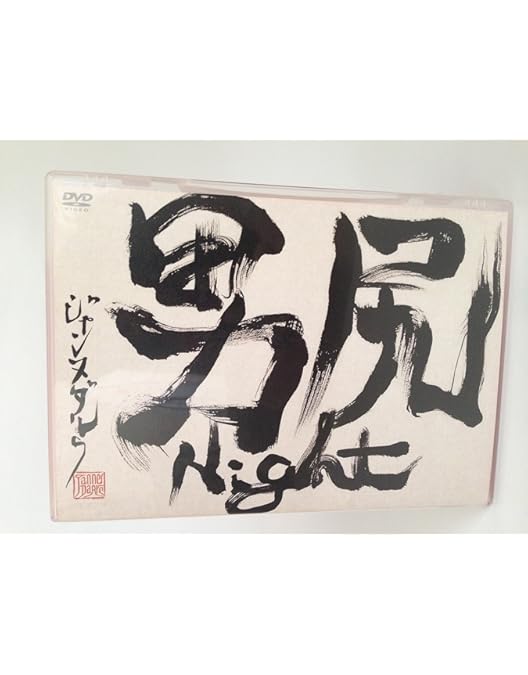 DVD
VIDEO
男尻
Night
ジャンヌダルク
Janne
Da Arc